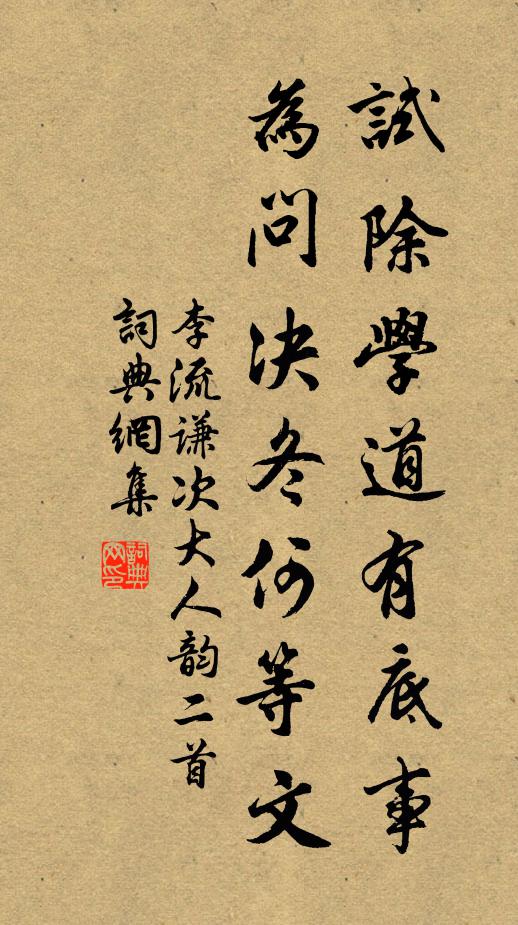 試除學道有底事
為問决冬何等文
李流謙次大人韵二首
詞典網集
詞典網印